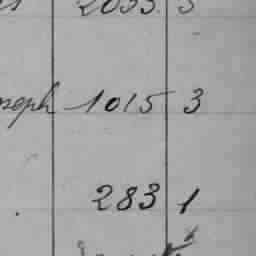 2033. 3
seph 1015 3
283 1